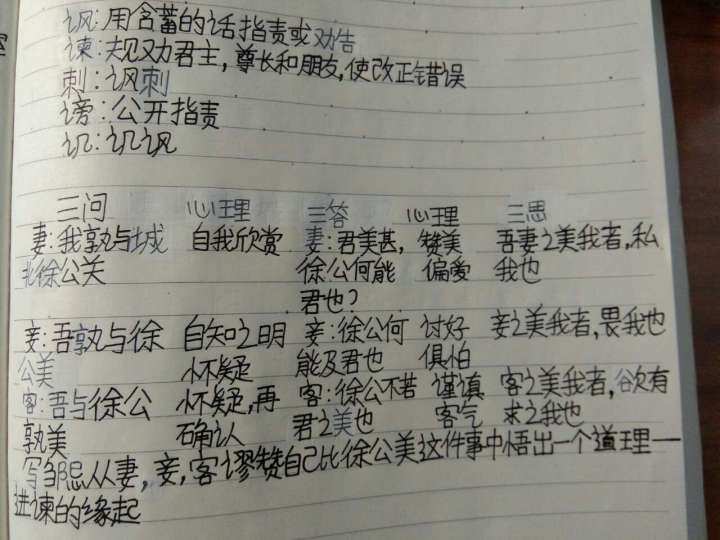 讽:用含蓄的话指责或劝告
谏:规劝君主,尊长和朋友,使改正错误
刺:讽刺
谤:公开指责
讥:讥讽
三问 心理 三答 心理 三思
妻:我孰与城 自我欣赏 妻:君美甚, 赞美 吾妻之美我者,私
北徐公美 徐公何能 偏爱 我也
君也?
妾:吾孰与徐 自知之明 妾:徐公何 讨好 妾之美我者,畏我也
公美 怀疑 能及君也 惧怕
客:吾与徐公 怀疑,再 客:徐公不若 谨慎 客之美我者,欲有
孰美 确认 君之美也 客气 求之我也
写邹忌从妻,妾,客谬赞自己比徐公美这件事中悟出一个道理一
进谏的缘起